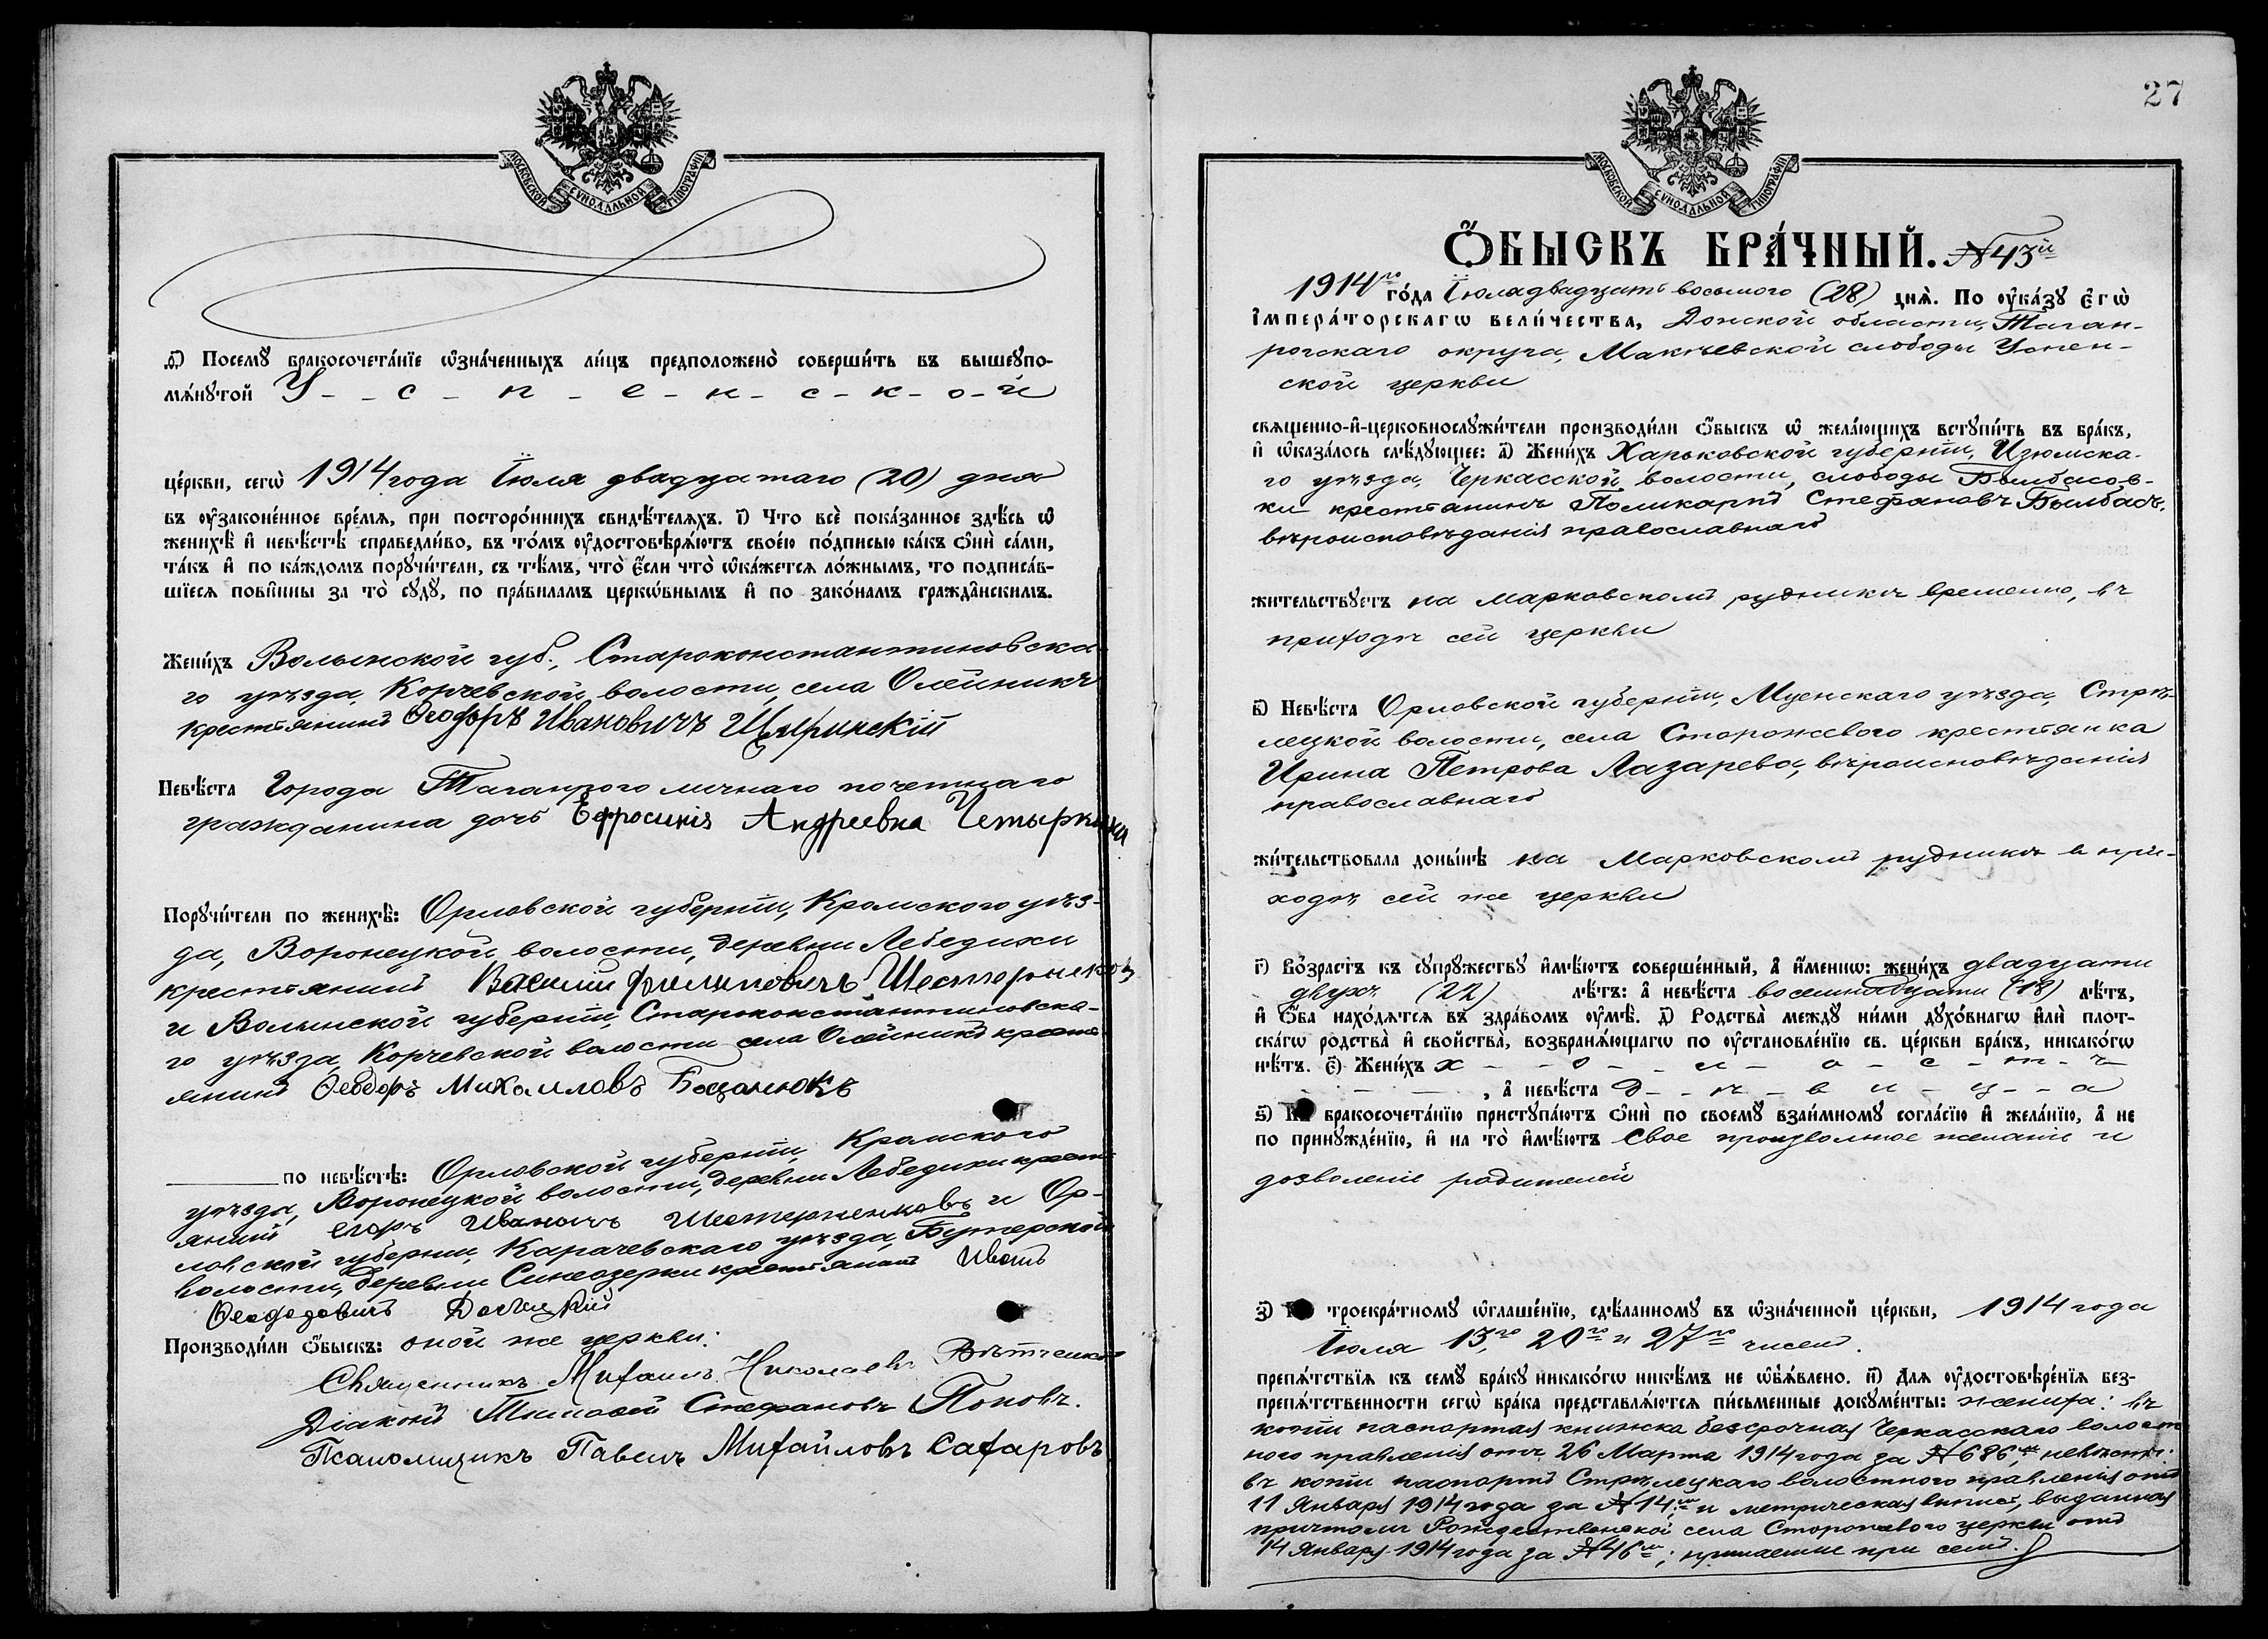 МОСКОВСКОЙ СѴНОДАЛЬНОЙ ТИПОГРАФІИ.
д҃) Посемꙋ̀ бракосочета́нїе ѡ҆зна́ченныхъ ли́цъ предположено̀ соверши́ть въ вышеꙋпо-
мѧ́нꙋтой У - - с - п - е - н - с - к - о - й
це́ркви, сегѡ̀ 1914 года Іюля двадцатаго (20) дня
въ ᲂу҆законе́нное вре́мѧ, при посторо́ннихъ свидѣ́телѧхъ. і҃) Что всѐ пока́занное здѣ́сь ѡ҆
женихѣ̀ и҆ невѣ́стѣ справедли́во, въ то́мъ ᲂу҆достовѣрѧ́ютъ свое́ю по́дписью ка́къ ѻ҆нѝ са́ми,
та́къ и҆ по ка́ждомъ порꙋчи́тели, съ тѣ́мъ, что̀ є҆́сли что̀ ѡ҆ка́жетсѧ ло́жнымъ, то подписа́в-
шїесѧ пови́нны за то̀ сꙋдꙋ̀, по пра́виламъ церкѡ́внымъ и҆ по зако́намъ гражда̂нскимъ.
Жени́хъ Волынской губ., Староконстантиновска-
го уѣзда, Корчевской волости, села Олейникъ
крестьянинъ Ѳеодоръ Ивановичъ
Невѣ́ста Города Таганрога личнаго почетнаго
гражданина дочь Ефросинія Андреевна Четыркина
Порꙋчи́тели по женихѣ̀: Орловской губерніи, Кромского уѣз-
да, Воронецкой волости, деревни Лебедихи
крестьянинъ Василій Филиповичъ
и Волынской губерніи, Староконстантиновска-
го уѣзда, Корчевской волости села Олейникъ кресть-
янинъ Ѳеодоръ Михаиловъ
по невѣ́стѣ: Орловской губерніи, Кромского
уѣзда, Воронецкой волости, деревни Лебедихи кресть-
янинъ Егоръ Иванычъ Шестерненковъ и Ор-
ловской губерніи, Карачевскаго уѣзда,
волости, деревни Синеозерки крестьянинъ Иванъ
Производи́ли ѻ҆́быскъ: оной же церкви:
Священникъ Михаилъ Николаевъ
Діаконъ Тимоѳей Стефановъ Поповъ.
Псаломщикъ Павелъ Михайловъ Сахаровъ
27
МОСКОВСКОЙ СѴНОДАЛЬНОЙ ТИПОГРАФІИ.
Ѻ҆́БЫСКЪ БРА́ЧНЫЙ. №43й
1914го го́да Іюля двадцать восьмого (28) днѧ̀. По ᲂу҆ка́зꙋ є҆гѡ̀
і҆мпера́торскагѡ вели́чества, Донской области, Таган-
рогскаго округа, Макѣевской слободы Успен-
ской церкви
свѧще́нно-и҆-церковнослꙋжи́тели производи́ли ѻ҆́быскъ ѡ҆ жела́ющихъ встꙋпи́ть въ бра́къ,
и҆ ѡ҆каза́лось слѣ́дꙋющее: а҃) Жени́хъ Харьковской губерніи, Изюмска-
го уѣзда, Черкасской волости, слободы Былбасов-
ки крестьянинъ Поликарпъ Стефановъ Былбасъ,
вѣроисповѣданія православнаго
жи́тельствꙋетъ на Марковскомъ рудникѣ временно, въ
приходѣ сей церкви
в҃) Невѣ́ста Орловской губерніи, Мценскаго уѣзда, Стрѣ-
лецкой волости, села Сторожевого крестьянка
Ирина Петрова Лазарева, вѣроисповѣданія
православнаго
жи́тельствовала доны́нѣ на Марковскомъ рудникѣ въ при-
ходѣ сей же церкви
г҃) Во́зрастъ къ сꙋпрꙋ́жествꙋ и҆мѣ́ютъ соверше́нный, а҆ и҆́меннѡ: жени́хъ двадцати
двухъ (22) лѣ́тъ: а҆ невѣ́ста восемнадцати (18) лѣ́тъ,
и҆ ѻ҆́ба нахо́дѧтсѧ въ здра́вомъ ᲂу҆мѣ̀. д҃) Родства̀ междꙋ̀ ни́ми дꙋхо́внагѡ и҆лѝ плот-
ска́гѡ родства̀ и҆ сво́йства, возбранѧ́ющагѡ по ᲂу҆становле́нїю св. це́ркви бра́къ, никако́гѡ
нѣ́тъ. є҃) Жени́хъ х - - о - - л - о - с - т - ъ
- - - , а҆ невѣ́ста д - - ѣ - в - и - ц - - а
ѕ҃) Къ бракосочета́нїю пристꙋпа́ютъ ѻ҆нѝ по своемꙋ̀ взаи́мномꙋ согла́сїю и҆ жела́нїю, а҆ не
по принꙋжде́нїю, и҆ на то̀ и҆мѣ́ютъ свое произвольное желаніе и
дозволеніе родителей
з҃) По троекра́тномꙋ ѡ҆глаше́нїю, сдѣ́ланномꙋ въ ѡ҆зна́ченной це́ркви, 1914 года
Іюля 13го, 20го и 27го чиселъ.
препѧ́тствїѧ къ семꙋ̀ бра́кꙋ никако́гѡ никѣ́мъ не ѡ҆б̾ѧ́влено. и҃) Длѧ ᲂу҆достовѣре́нїѧ без-
препѧ́тственности сегѡ̀ бра́ка представлѧ́ютсѧ пи́сьменные докꙋме́нты: жениха: въ
копіи паспортная книжка безсрочная Черкасскаго волост-
ного правленія отъ 26 Марта 1914 года за №686мъ, невѣсты:
въ копіи паспортъ Стрѣлецкаго волостного правленія отъ
11 Января 1914 года за №14мъ и метрическая выпись, выданная
причтомъ Рождественской села Сторожевого церкви отъ
14 Января 1914 года за №16мъ; прилагаемые при семъ.